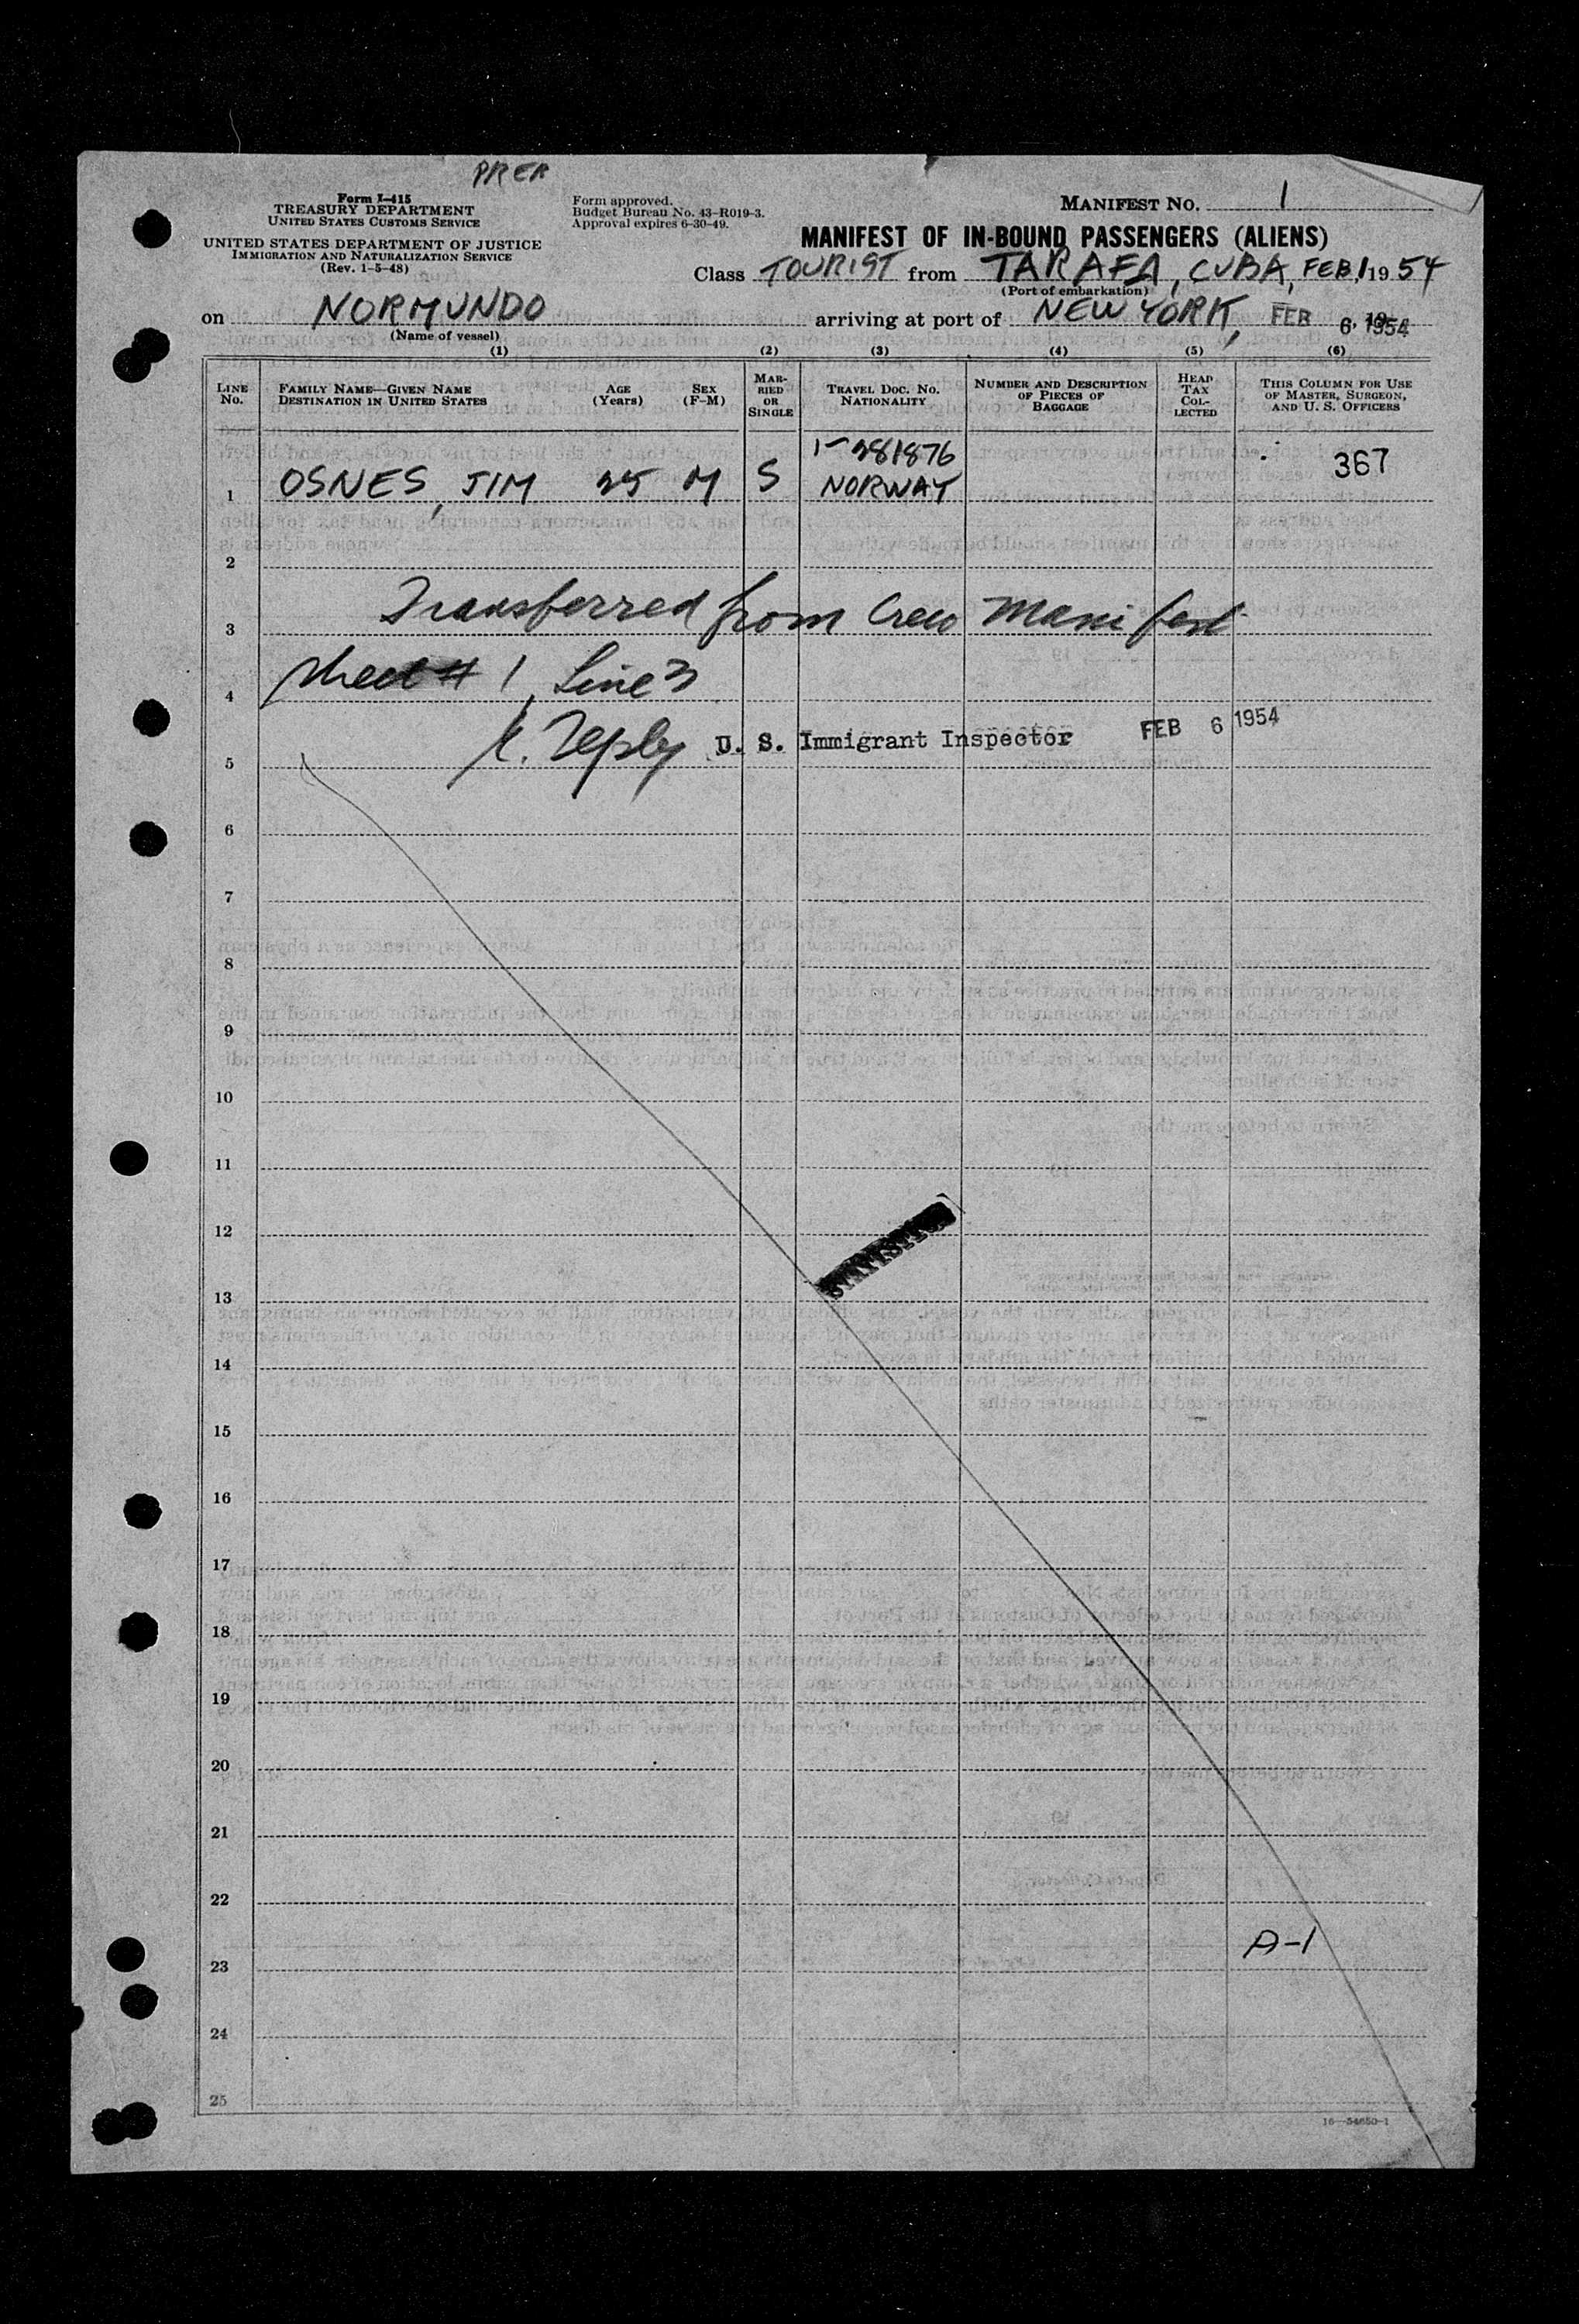 PRER
Form I-415
TREASURY DEPARTMENT
UNITED STATES CUSTOMS SERVICE
UNITED STATES DEPARTMENT OF JUSTICE
IMMIGRATION AND NATURALIZATION SERVICE
(Rev. 1-5-48)
Form approved.
Budget Bureau No. 43-R019-3.
Approval expires 6-30-49.
MANIFEST NO. 1
MANIFEST OF IN-BOUND PASSENGERS (ALIENS)
Class TOURIST from TARAFA, CUBA, FEB 1 1954
(Port of embarkation)
on NORMUNDO arriving at port of NEW YORK, FEB 6, 1954
(Name of vessel)
(1) (2) (3) (4) (5) (6)
LINE No. FAMILY NAME—GIVEN NAME DESTINATION IN UNITED STATES AGE (Years) SEX (F-M) MARRIED OR SINGLE TRAVEL DOC. NO. NATIONALITY NUMBER AND DESCRIPTION OF PIECES OF BAGGAGE HEAD TAX COLLECTED THIS COLUMN FOR USE OF MASTER, SURGEON, AND U. S. OFFICERS
1-281876
1 OSNES, JIM 25 M S NORWAY 367
2
3 Transferred from Crew Manifest
4 sheet # 1, Line 3
5 U. S. Immigrant Inspector FEB 6 1954
6
7
8
9
10
11
12
13
14
15
16
17
18
19
20
21
22
23 A-1
24
25
16—54650-1